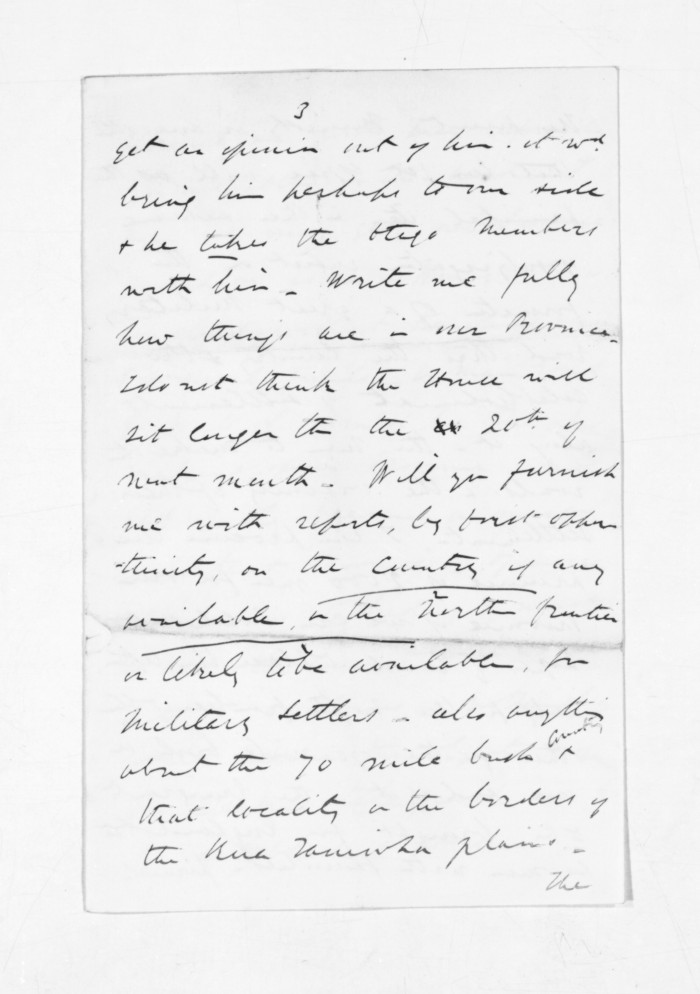 3
get an opinion out of him. it wd
bring him perhaps to our side
& he takes the Otago Members
with him – Write me fully
how things are in our Province –
I do not think the House will
sit longer th the 20th of
next month – Will you furnish
me with reports, by first oppor
-tunity, on the Country if any
available, on the North frontier
or likely to be available, for
Military Settlers – also anythin
about the 70 mile bush &
that locality on the borders of
the Rua Taniwha plains –
The